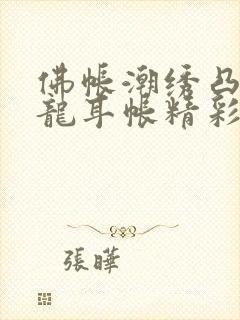 佛帳潮绣凸
龍耳帳精彩
張曄